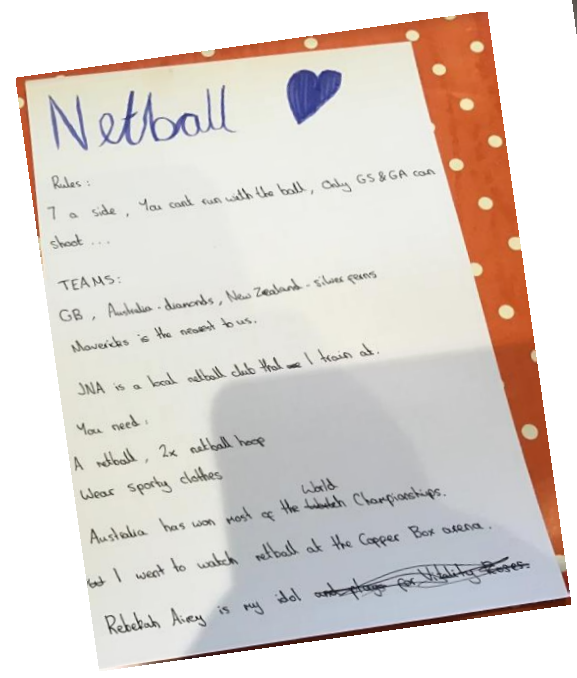 Netball
Rules:
7 a side, You cant run with the ball, Only GS & GA can
shoot ...
TEAMS:
GB, Australia - diamonds, New Zealand - silver ferns
Mavericks is the nearest to us.
JNA is a local netball club that I train at.
You need:
A netball, 2x netball hoop
Wear sporty clothes
Australia has won most of the World Championships.
I went to watch netball at the Copper Box arena.
Rebekah Airey is my idol and plays for Vitality Roses.